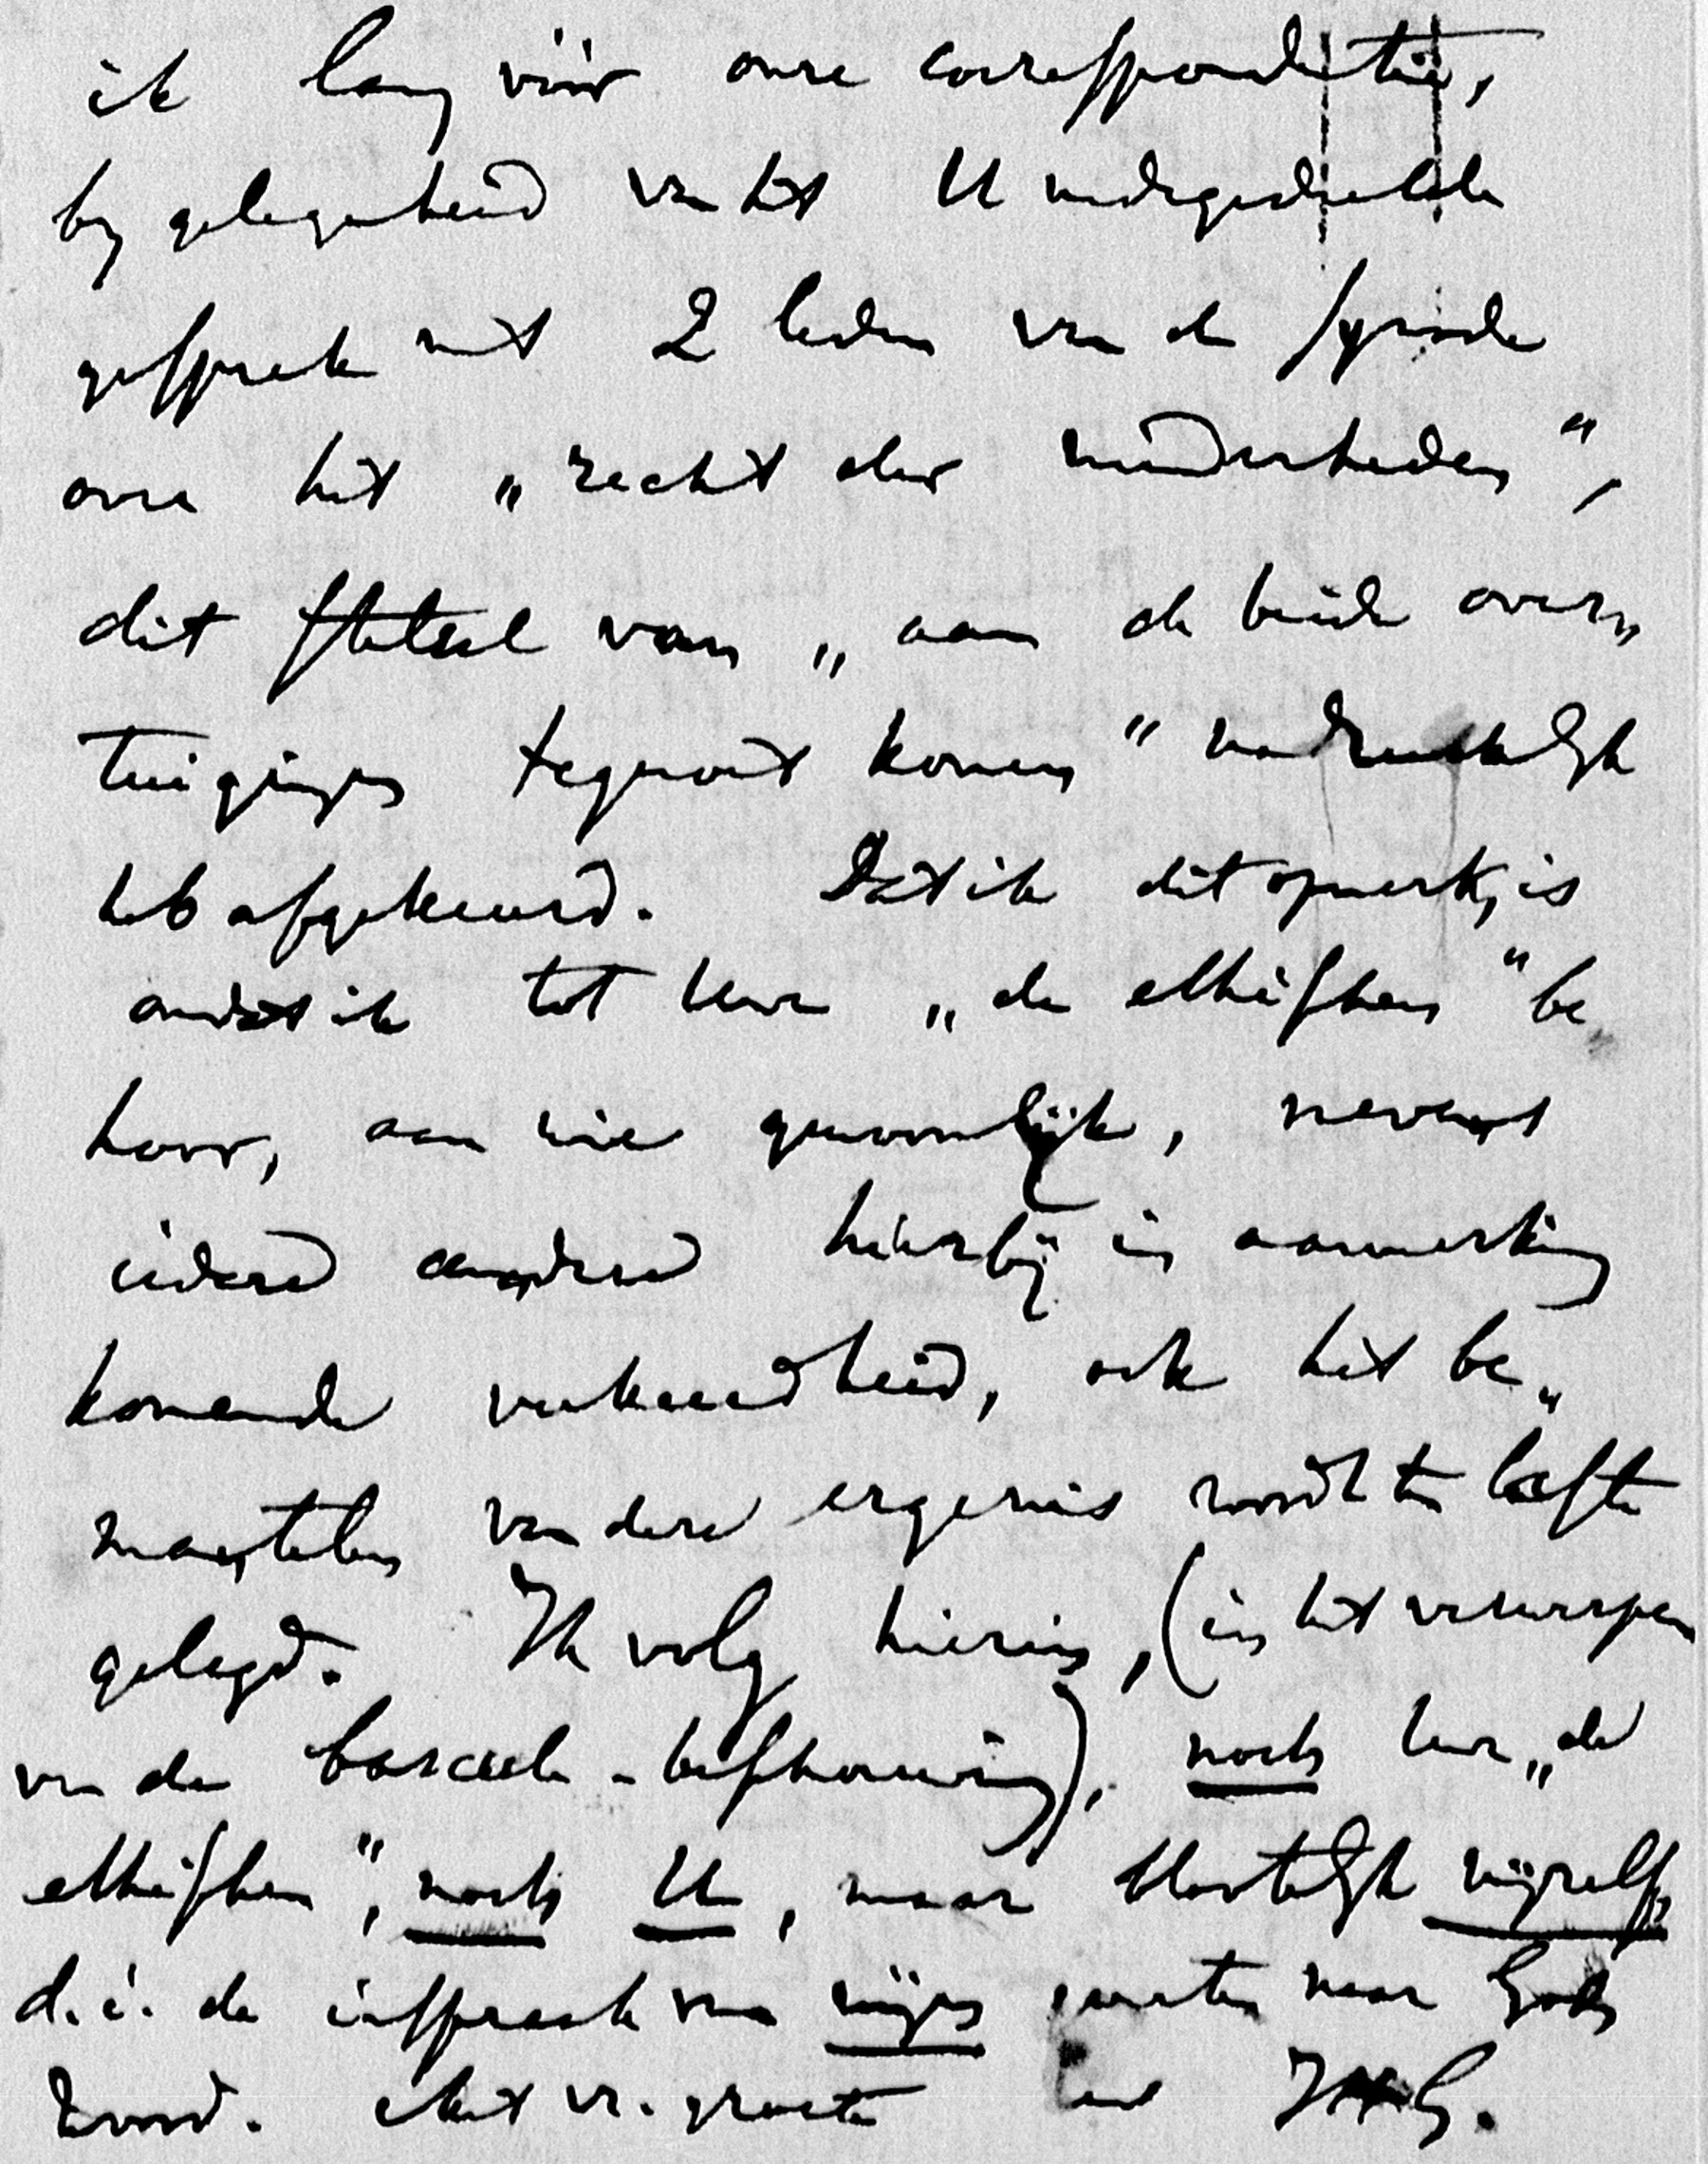 ik lang vóór onze correspondentie,
by gelegenheid van het U medegedeelde
gesprek met 2 leden van de Synode
over het „recht der minderheden",
dit stelsel van „aan de beide over„
tuigingen tegemoet komen" nadrukkelijk
heb afgekeurd. Dat ik dit opmerk, is
omdat ik tot Uwe „de ethischen" be
hoor, aan wie gewoonlijk, nevens
iedere andere hierbij in aanmerking
komende verkeerdheid, ook het be„
mantelen van deze ergernis wordt ten laste
gelegd. Ik volg hierin, (in het verwerpen
van de bascule-beschouwing), noch Uwe „de
ethischen", noch U, maar blootelijk mijzelf,
d.i. de inspraak van mijn geweten naar Gods
Woord. Met vr. groete JHG.